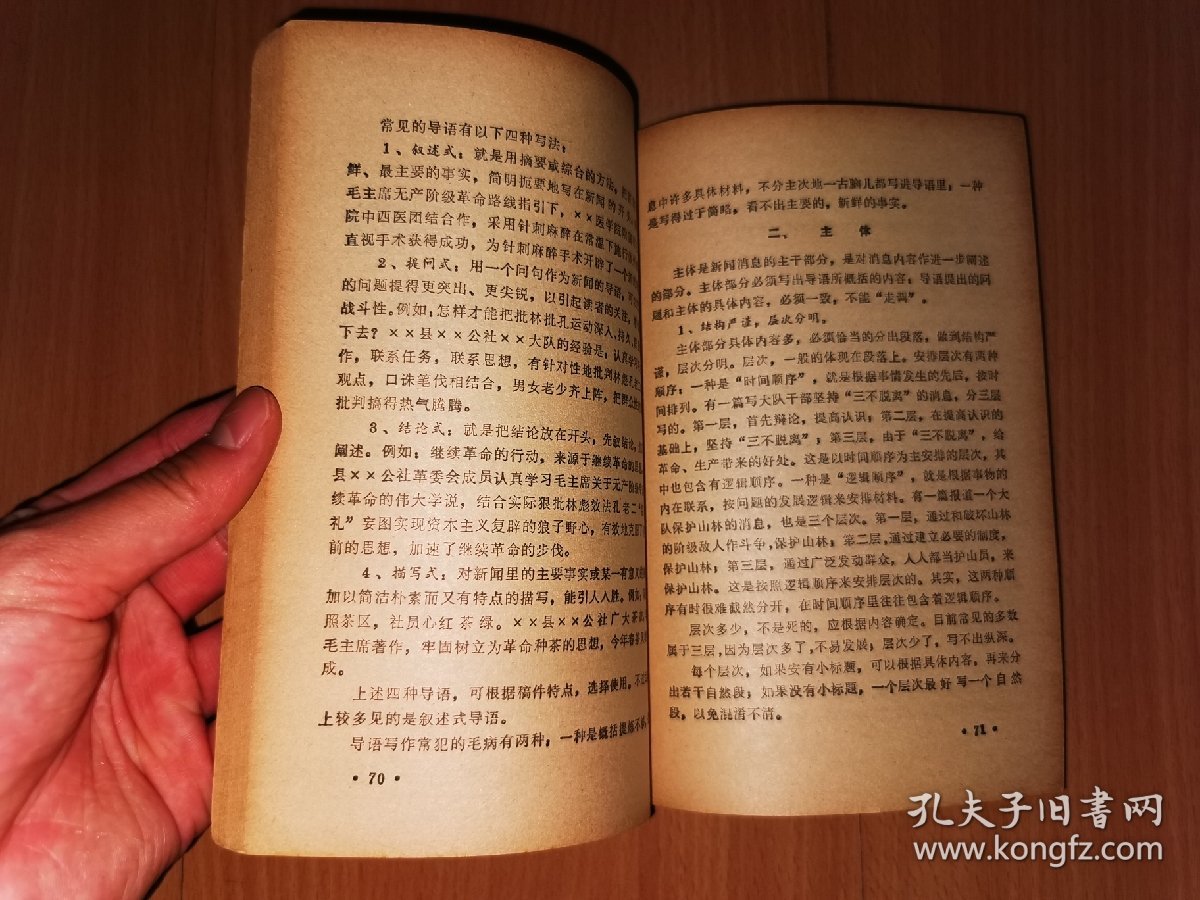 常见的导语有以下四种写法：
1、叙述式：就是用摘要或综合的方法，把
鲜、最主要的事实，简明扼要地写在新闻的开头
毛主席无产阶级革命路线指引下，××医学院
院中西医团结合作，采用针刺麻醉在常温下
直视手术获得成功，为针刺麻醉手术开辟了一个
2、提问式：用一个问句作为新闻的导语，可
的问题提得更突出、更尖锐，以引起读者的关注，
战斗性。例如，怎样才能把批林批孔运动深入、持久、
下去？××县××公社××大队的经验是：认真学习
作，联系任务，联系思想，有针对性地批判林彪孔老
观点，口诛笔伐相结合，男女老少齐上阵，把群众性
批判搞得热气腾腾。
3、结论式：就是把结论放在开头，先叙结论，
阐述。例如：继续革命的行动，来源于继续革命的
县××公社革委会成员认真学习毛主席关于无产阶级
续革命的伟大学说，结合实际狠批林彪效法孔老二“
礼”妄图实现资本主义复辟的狼子野心，有效地克服
前的思想，加速了继续革命的步伐。
4、描写式：对新闻里的主要事实或某一有意义的
加以简洁朴素而又有特点的描写，能引人入胜。例如，
照茶区，社员心红茶绿。××县××公社广大茶
毛主席著作，牢固树立为革命种茶的思想，今年春茶
成。
上述四种导语，可根据稿件特点，选择使用。不过
上较多见的是叙述式导语。
导语写作常犯的毛病有两种，一种是概括提炼不够
·70·
息中许多具体材料，不分主次地一古脑儿都写进导语里；一种
是写得过于简略，看不出主要的，新鲜的事实。
二、主体
主体是新闻消息的主干部分，是对消息内容作进一步阐述
的部分。主体部分必须写出导语所概括的内容；导语提出的问
题和主体的具体内容，必须一致，不能“走调”。
1、结构严谨，层次分明。
主体部分具体内容多，必须恰当的分出段落，做到结构严
谨，层次分明。层次，一般的体现在段落上。安排层次有两种
顺序，一种是“时间顺序”，就是根据事情发生的先后，按时
间排列。有一篇写大队干部坚持“三不脱离”的消息，分三层
写的。第一层，首先辩论，提高认识；第二层，在提高认识的
基础上，坚持“三不脱离”；第三层，由于“三不脱离”，给
革命、生产带来的好处。这是以时间顺序为主安排的层次，其
中也包含有逻辑顺序。一种是“逻辑顺序”，就是根据事物的
内在联系，按问题的发展逻辑来安排材料。有一篇报道一个大
队保护山林的消息，也是三个层次。第一层，通过和破坏山林
的阶级敌人作斗争，保护山林；第二层，通过建立必要的制度，
保护山林；第三层，通过广泛发动群众，人人都当护山员，来
保护山林。这是按照逻辑顺序来安排层次的。其实，这两种顺
序有时很难截然分开，在时间顺序里往往包含着逻辑顺序。
层次多少，不是死的，应根据内容确定。目前常见的多数
属于三层，因为层次多了，不易发展；层次少了，写不出纵深。
每个层次，如果安有小标题，可以根据具体内容，再来分
出若干自然段；如果没有小标题，一个层次最好写一个自然
段，以免混淆不清。
·71·
孔夫子旧書网
www.kongfz.com